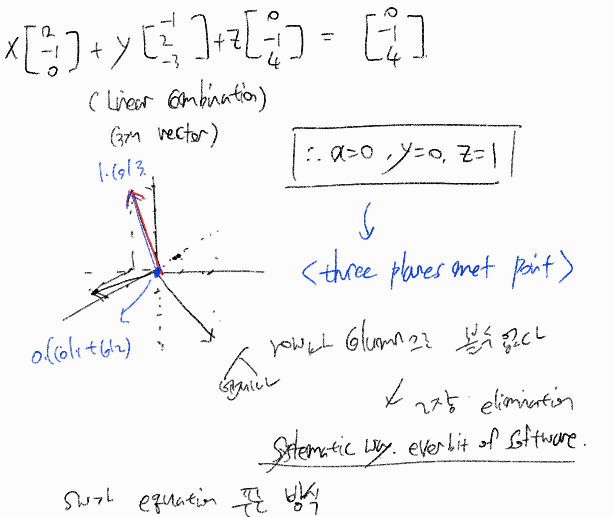 x[2 -1 0] + y[-1 2 -3] + z[0 -1 4] = [0 -1 4]
(linear combination)
(3개 vector)
∴ x=0, y=0, z=1
1.col3.
<three planes met point>
0.(col1+col2)
row나 column으로 볼수 없다
elimination
systematic way. ever bit of software.
sw가 equation 푸는 방식